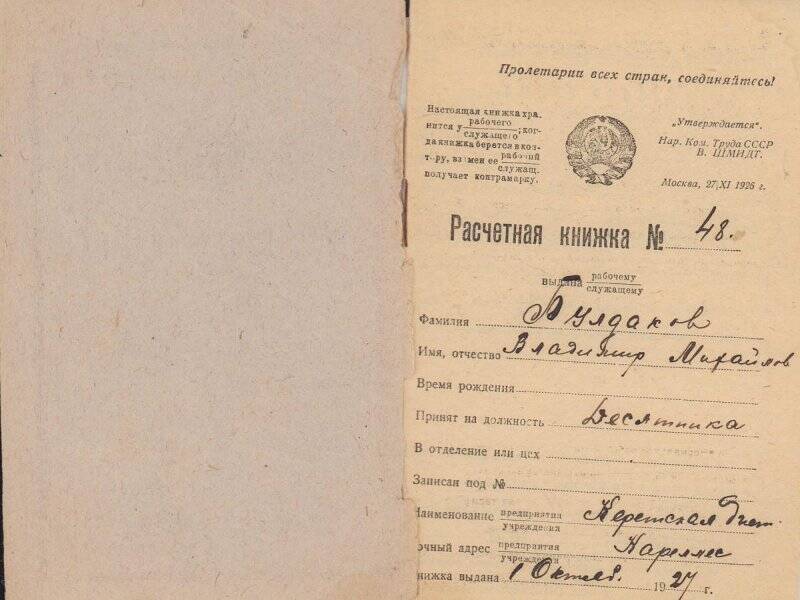 Пролетарии всех стран, соединяйтесь!
Настоящая книжка хра-
нится у рабочего служащего; ког-
да книжка берется в кон-
тору, взамен ее рабочий служащ.
получает контрамарку.
„Утверждается".
Нар. Ком. Труда СССР
В. ШМИДТ.
Москва, 27/XI 1926 г.
Расчетная книжка № 48.
выдана рабочему служащему
Фамилия Булдаков
Имя, отчество Владимир Михайлов
Время рождения
Принят на должность Десятника
В отделение или цех
Записан под №
Наименование предприятия учреждения Керетская
очный адрес предприятия учреждения Кареллес
нижка выдана 1 Октяб. 1927 г.